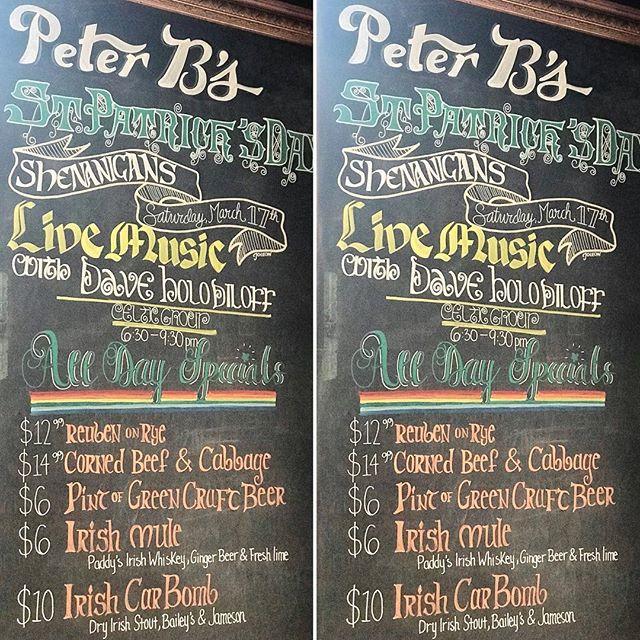 Peter B's
St Patrick's Day
Shenanigans
Saturday, March 17th
Live Music
with Dave Holodiloff
Celtic Group
6:30-9:30pm
All Day Specials
$12.99 Reuben on Rye
$14.99 Corned Beef & Cabbage
$6 Pint of Green Cruft Beer
$6 Irish Mule
Paddy's Irish Whiskey, Ginger Beer & Fresh lime
$10 Irish Car Bomb
Dry Irish Stout, Bailey's & Jameson
Peter B's
St Patrick's Day
Shenanigans
Saturday, March 17th
Live Music
with Dave Holodiloff
Celtic Group
6:30-9:30pm
All Day Specials
$12.99 Reuben on Rye
$14.99 Corned Beef & Cabbage
$6 Pint of Green Cruft Beer
$6 Irish Mule
Paddy's Irish Whiskey, Ginger Beer & Fresh lime
$10 Irish Car Bomb
Dry Irish Stout, Bailey's & Jameson